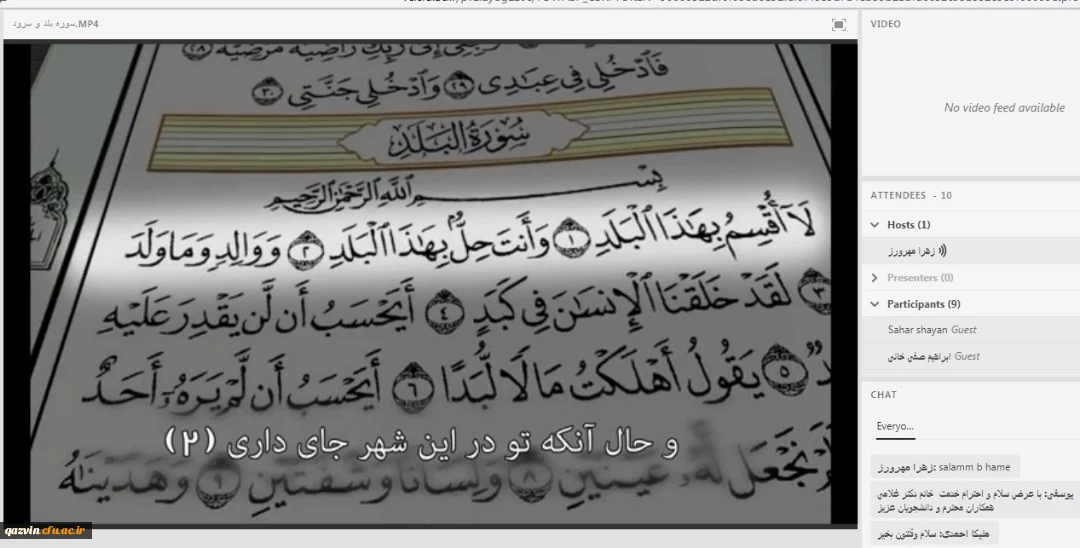 سوره بلد و سرود.MP4
فَٱدْخُلِى فِى عِبَٰدِى ٢٩ وَٱدْخُلِى جَنَّتِى ٣٠
سُورَةُ البَلَدِ
بِسْمِ اللَّهِ الرَّحْمَٰنِ الرَّحِيمِ
لَآ أُقْسِمُ بِهَٰذَا ٱلْبَلَدِ ١ وَأَنتَ حِلٌّۢ بِهَٰذَا ٱلْبَلَدِ ٢ وَوَالِدٍ وَمَا وَلَدَ
٣ لَقَدْ خَلَقْنَا ٱلْإِنسَٰنَ فِى كَبَدٍ ٤ أَيَحْسَبُ أَن لَّن يَقْدِرَ عَلَيْهِ
٥ يَقُولُ أَهْلَكْتُ مَالًا لُّبَدًا ٦ أَيَحْسَبُ أَن لَّمْ يَرَهُۥٓ أَحَدٌ
و حال آنکه تو در این شهر جای داری (۲)
نَجْعَل لَّهُۥ عَيْنَيْنِ ٨ وَلِسَانًا وَشَفَتَيْنِ ٩ وَهَدَيْنَٰهُ
qazvin.cfu.ac.ir
VIDEO
No video feed available
ATTENDEES - 10
Hosts (1)
زهرا مهرورز
Presenters (0)
Participants (9)
Sahar shayan Guest
ابراهیم صفی خانی Guest
CHAT
Everyo...
زهرا مهرورز: salamm b hame
یوسفی: با عرض سلام و احترام خدمت خانم دکتر غلامی
همکاران محترم و دانشجویان عزیز
ملیکا احمدی: سلام وقتتون بخیر